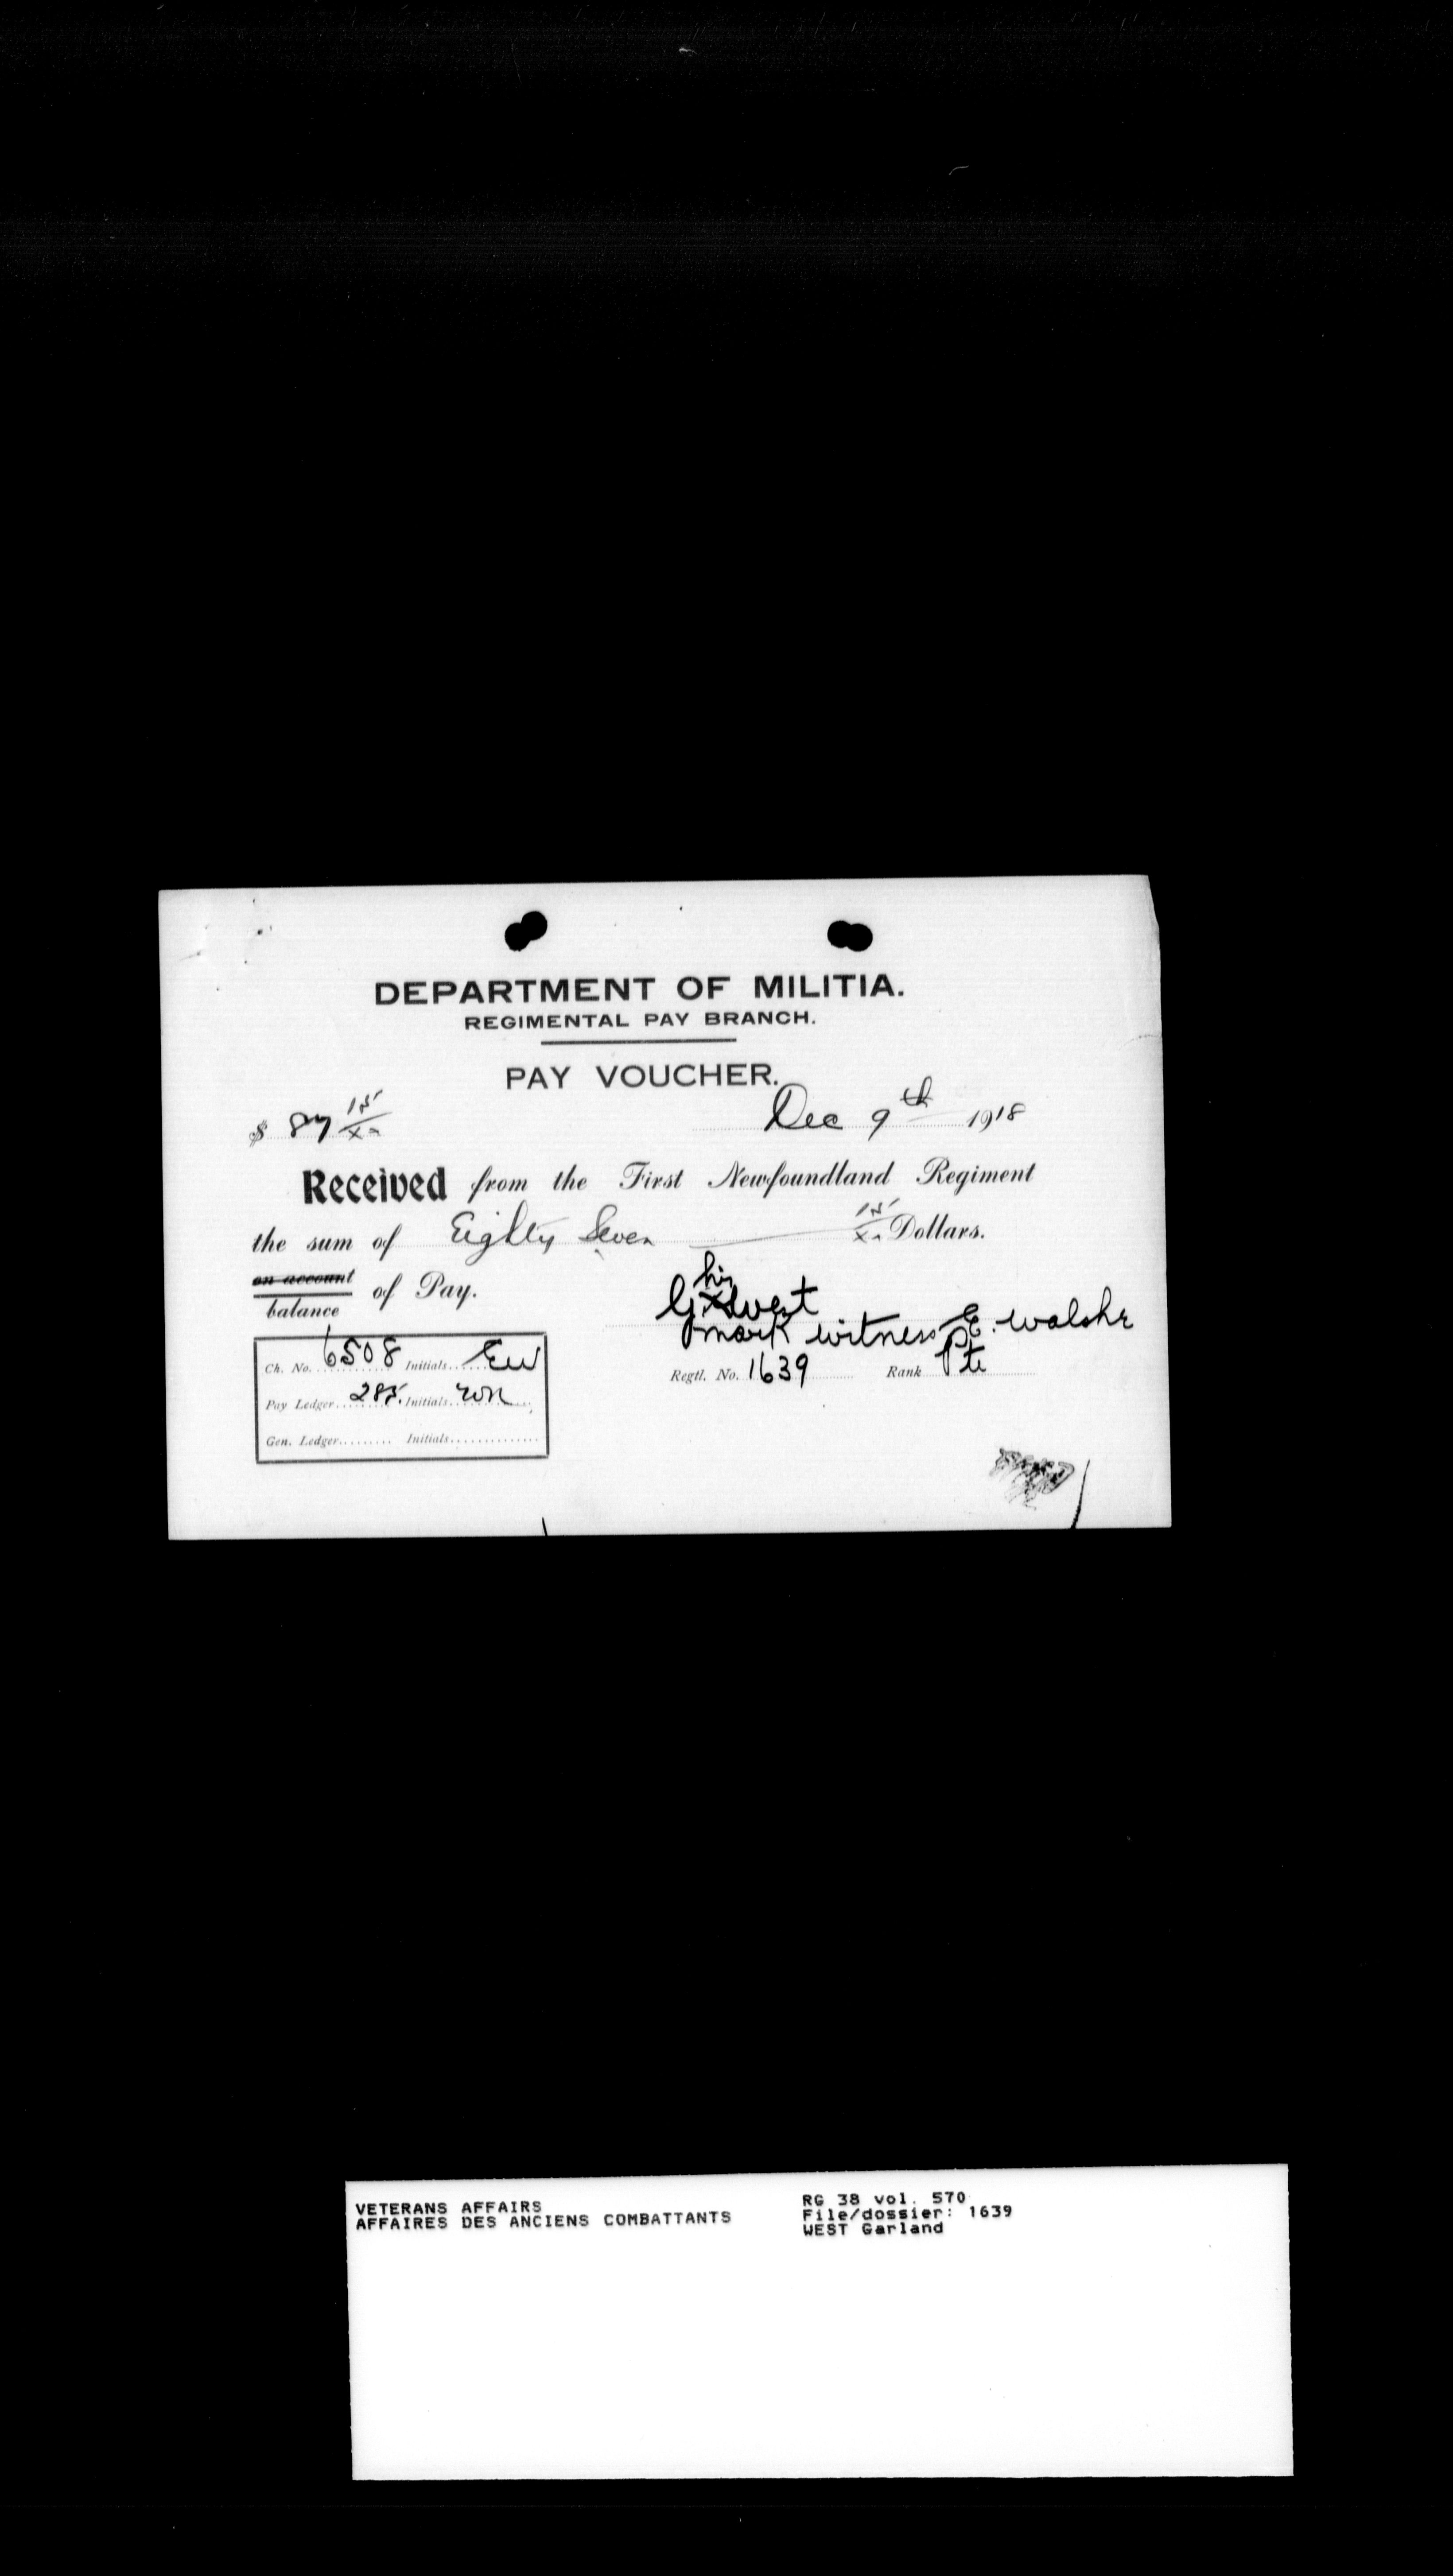 DEPARTMENT OF MILITIA.
REGIMENTAL PAY BRANCH.
PAY VOUCHER.
$ 87 15/xx Dec 9th 1918
Received from the First Newfoundland Regiment
the sum of Eighty Seven 15/xx Dollars.
on account
balance of Pay.
his
G. x West
mark witness E. Walshe
Ch. No. 6508 Initials EW
Regtl. No. 1639 Rank Pte
Pay Ledger 285. Initials
Gen. Ledger Initials
VETERANS AFFAIRS
AFFAIRES DES ANCIENS COMBATTANTS
RG 38 vol. 570
File/dossier: 1639
WEST Garland